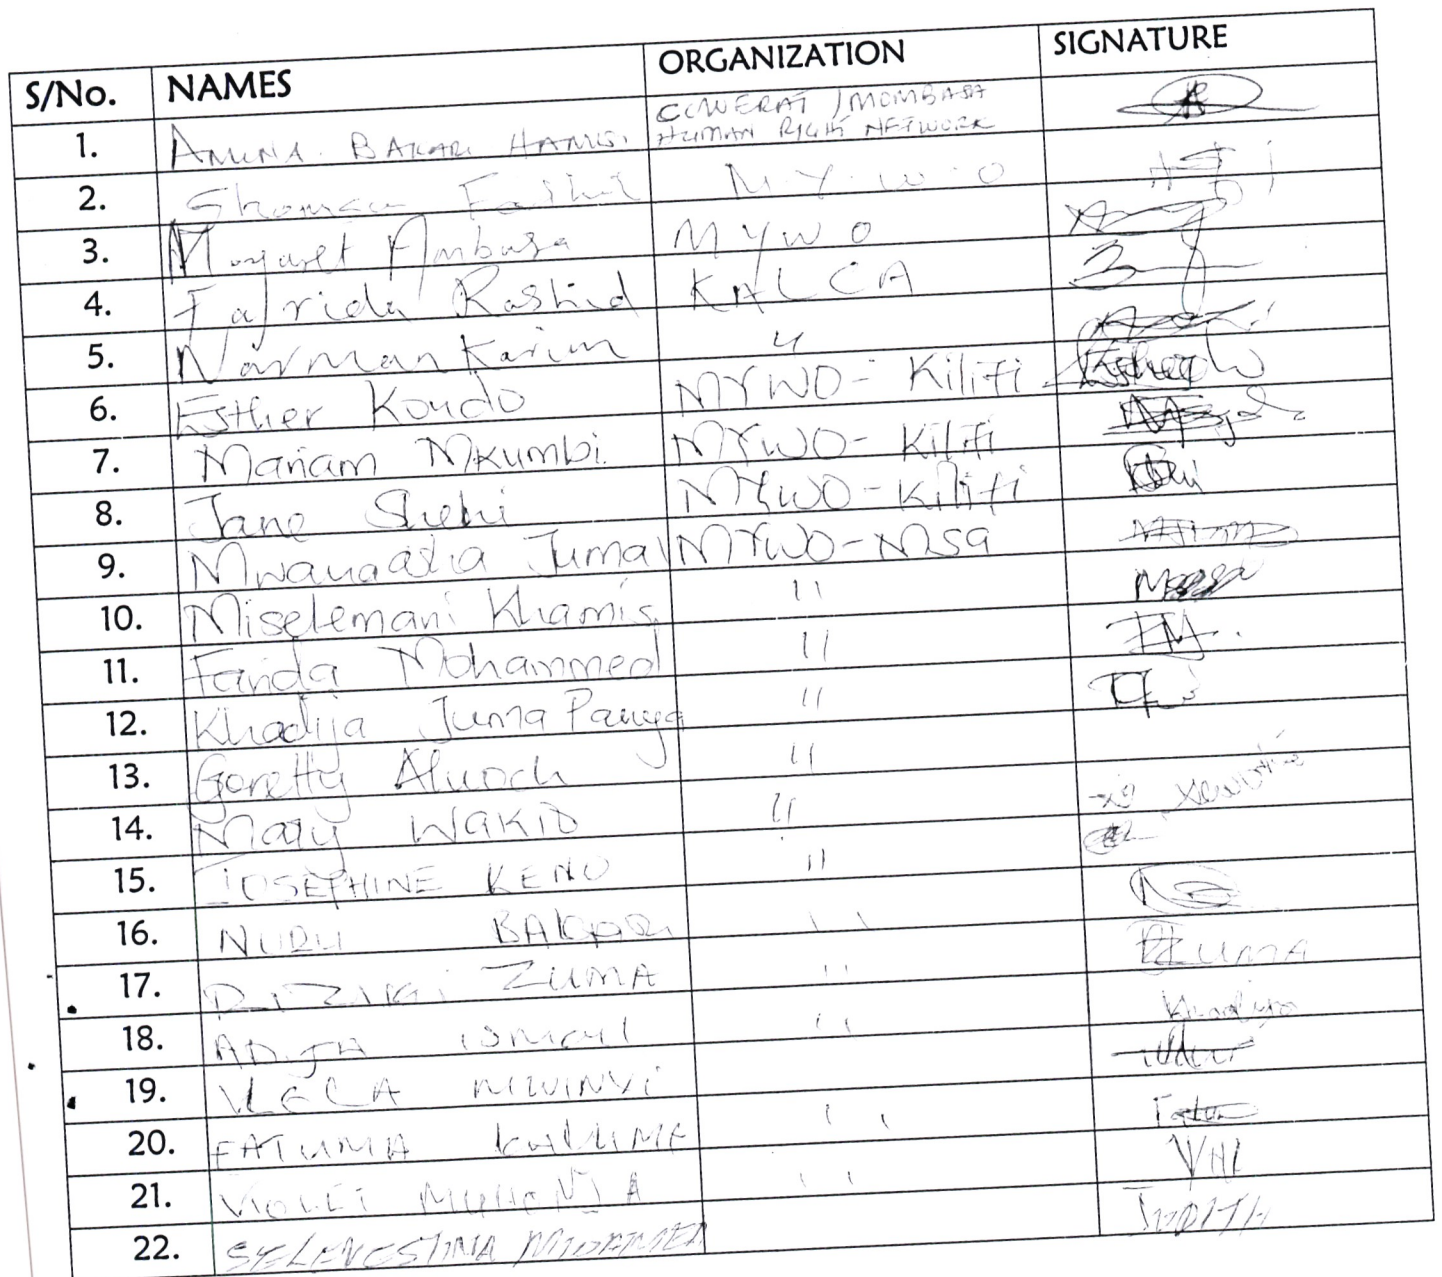 S/No. NAMES ORGANIZATION SIGNATURE
1. AMINA BAKARI HAMISI COWERAT / MOMBASA
HUMAN RIGHT NETWORK
2. M Y W O
3. Margaret Ambusa MYWO
4. Fajrida Rashid KALCA
5. Narman Karim "
6. Esther Kondo MYWO - Kilifi
7. Mariam Mkumbi MYWO - Kilifi
8. Jane Shehi MYWO - Kilifi
9. Mwanaasia Juma MYWO - Msa
10. Miselemani Khamis "
11. Farida Mohammed " FM.
12. Khadija Juma Panga "
13. Goretty Aluoch "
14. Mary WAKIO "
15. JOSEPHINE KENO "
16. NURU BAKARI "
17. RIZIKI ZUMA " ZUMA
18. ADIJA ISMAIL " Khadija
19. MWINYI
20. FATUMA "
21. VIOLET MUHONJA "
22. SELEVESTINA JUDITH